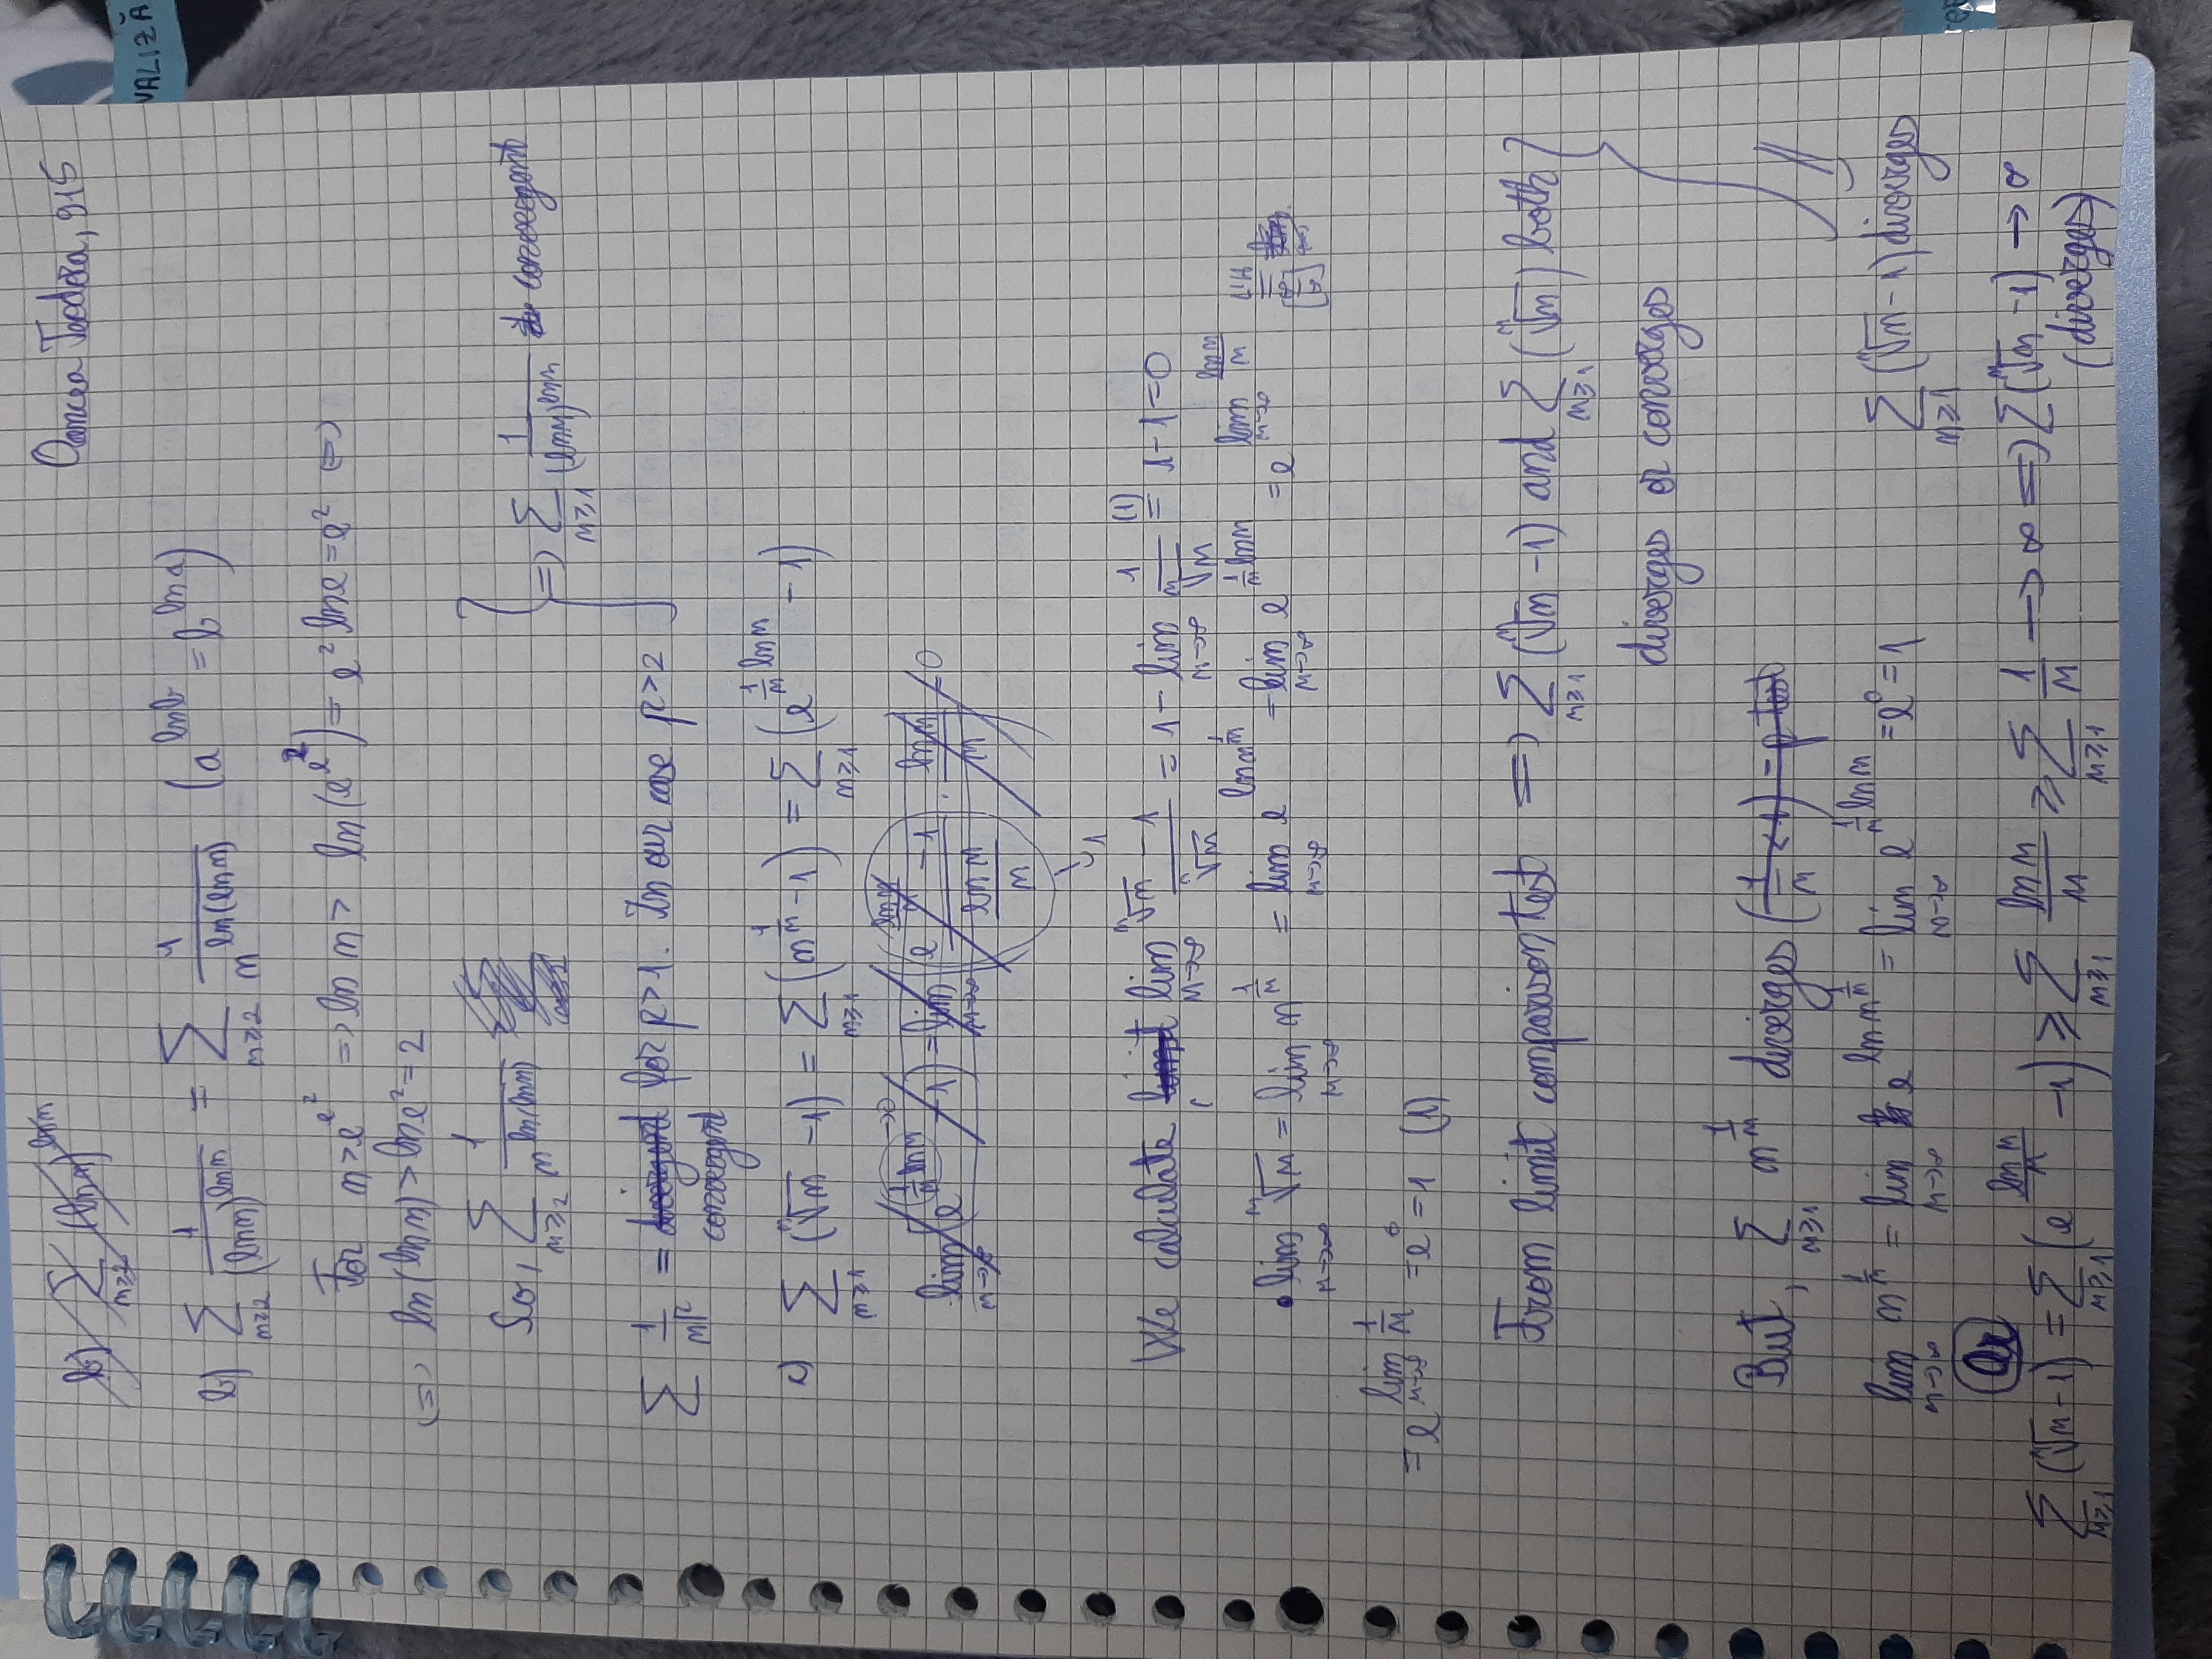 Oancea Teodora, 915
b) ∑_{n≥2} (ln n)^{ln n}
VALIZĂ
b) ∑_{n≥2} 1/(ln n)^{ln n} = ∑_{n≥2} 1/n^{ln(ln n)} (a^{ln b} = b^{ln a})
For n > e^{e^2} => ln n > ln(e^{e^2}) = e^2 ln e = e^2 <=>
<=> ln(ln n) > ln e^2 = 2
So, ∑_{n≥2} 1/n^{ln(ln n)}
=> ∑_{n≥1} 1/(ln n)^{ln n} convergent
∑ 1/n^p = divergent for p > 1. In our case p > 2
convergent
c) ∑_{n≥1} (ⁿ√n - 1) = ∑_{n≥1} (n^{1/n} - 1) = ∑_{n≥1} (e^{1/n ln n} - 1)
lim_{n→∞} (e^{1/n ln n →0} - 1) = lim_{n→∞} ((e^{ln n/n} - 1)/(ln n/n) · ln n/n) = 0
↓ 1
We calculate limit lim_{n→∞} (ⁿ√n - 1)/ⁿ√n = 1 - lim_{n→∞} 1/ⁿ√n =^{(1)} 1 - 1 = 0
• lim_{n→∞} ⁿ√n = lim_{n→∞} n^{1/n} = lim_{n→∞} e^{ln n^{1/n}} = lim_{n→∞} e^{1/n ln n} = e^{lim_{n→∞} ln n/n} =^{l'H}_{[∞/∞]}
= e^{lim_{n→∞} 1/n} = e^0 = 1 (1)
From limit comparison test => ∑_{n≥1} (ⁿ√n - 1) and ∑_{n≥1} (ⁿ√n) both
diverges or converges
But, ∑_{n≥1} n^{1/n} diverges (1/n < 1) - p test
lim_{n→∞} n^{1/n} = lim_{n→∞} e^{ln n^{1/n}} = lim_{n→∞} e^{1/n ln n} = e^0 = 1
∑_{n≥1} (ⁿ√n - 1) diverges
Or
∑_{n≥1} (ⁿ√n - 1) = ∑_{n≥1} (e^{ln n/n} - 1) ≥ ∑_{n≥1} ln n/n ≥ ∑_{n≥1} 1/n → ∞ => ∑ (ⁿ√n - 1) → ∞
(diverges)